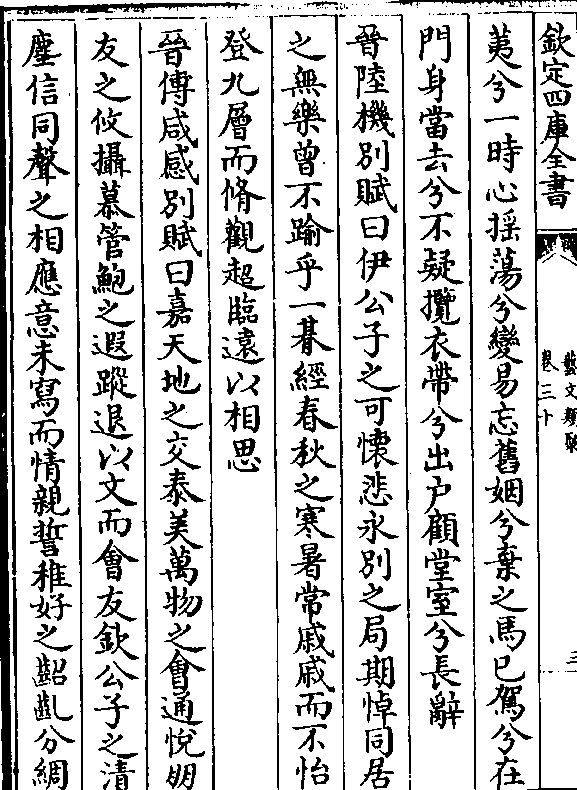 欽定四庫全書
藝文類聚
卷三十
三
荑兮一時心揺蕩兮變易忘舊姻兮棄之馬已駕兮在
門身當去兮不疑攬衣帶兮出户顧堂室兮長辭
晉陸機别賦曰伊公子之可懷悲永别之局期悼同居
之無樂曾不踰乎一朞經春秋之寒暑常戚戚而不怡
登九層而脩觀超臨遠以相思
晉傅咸感别賦曰嘉天地之交泰美萬物之會通悦朋
友之攸攝慕管鮑之遐蹤退以文而會友欽公子之清
塵信同聲之相應意未寫而情親誓稚好之齠亂分綢